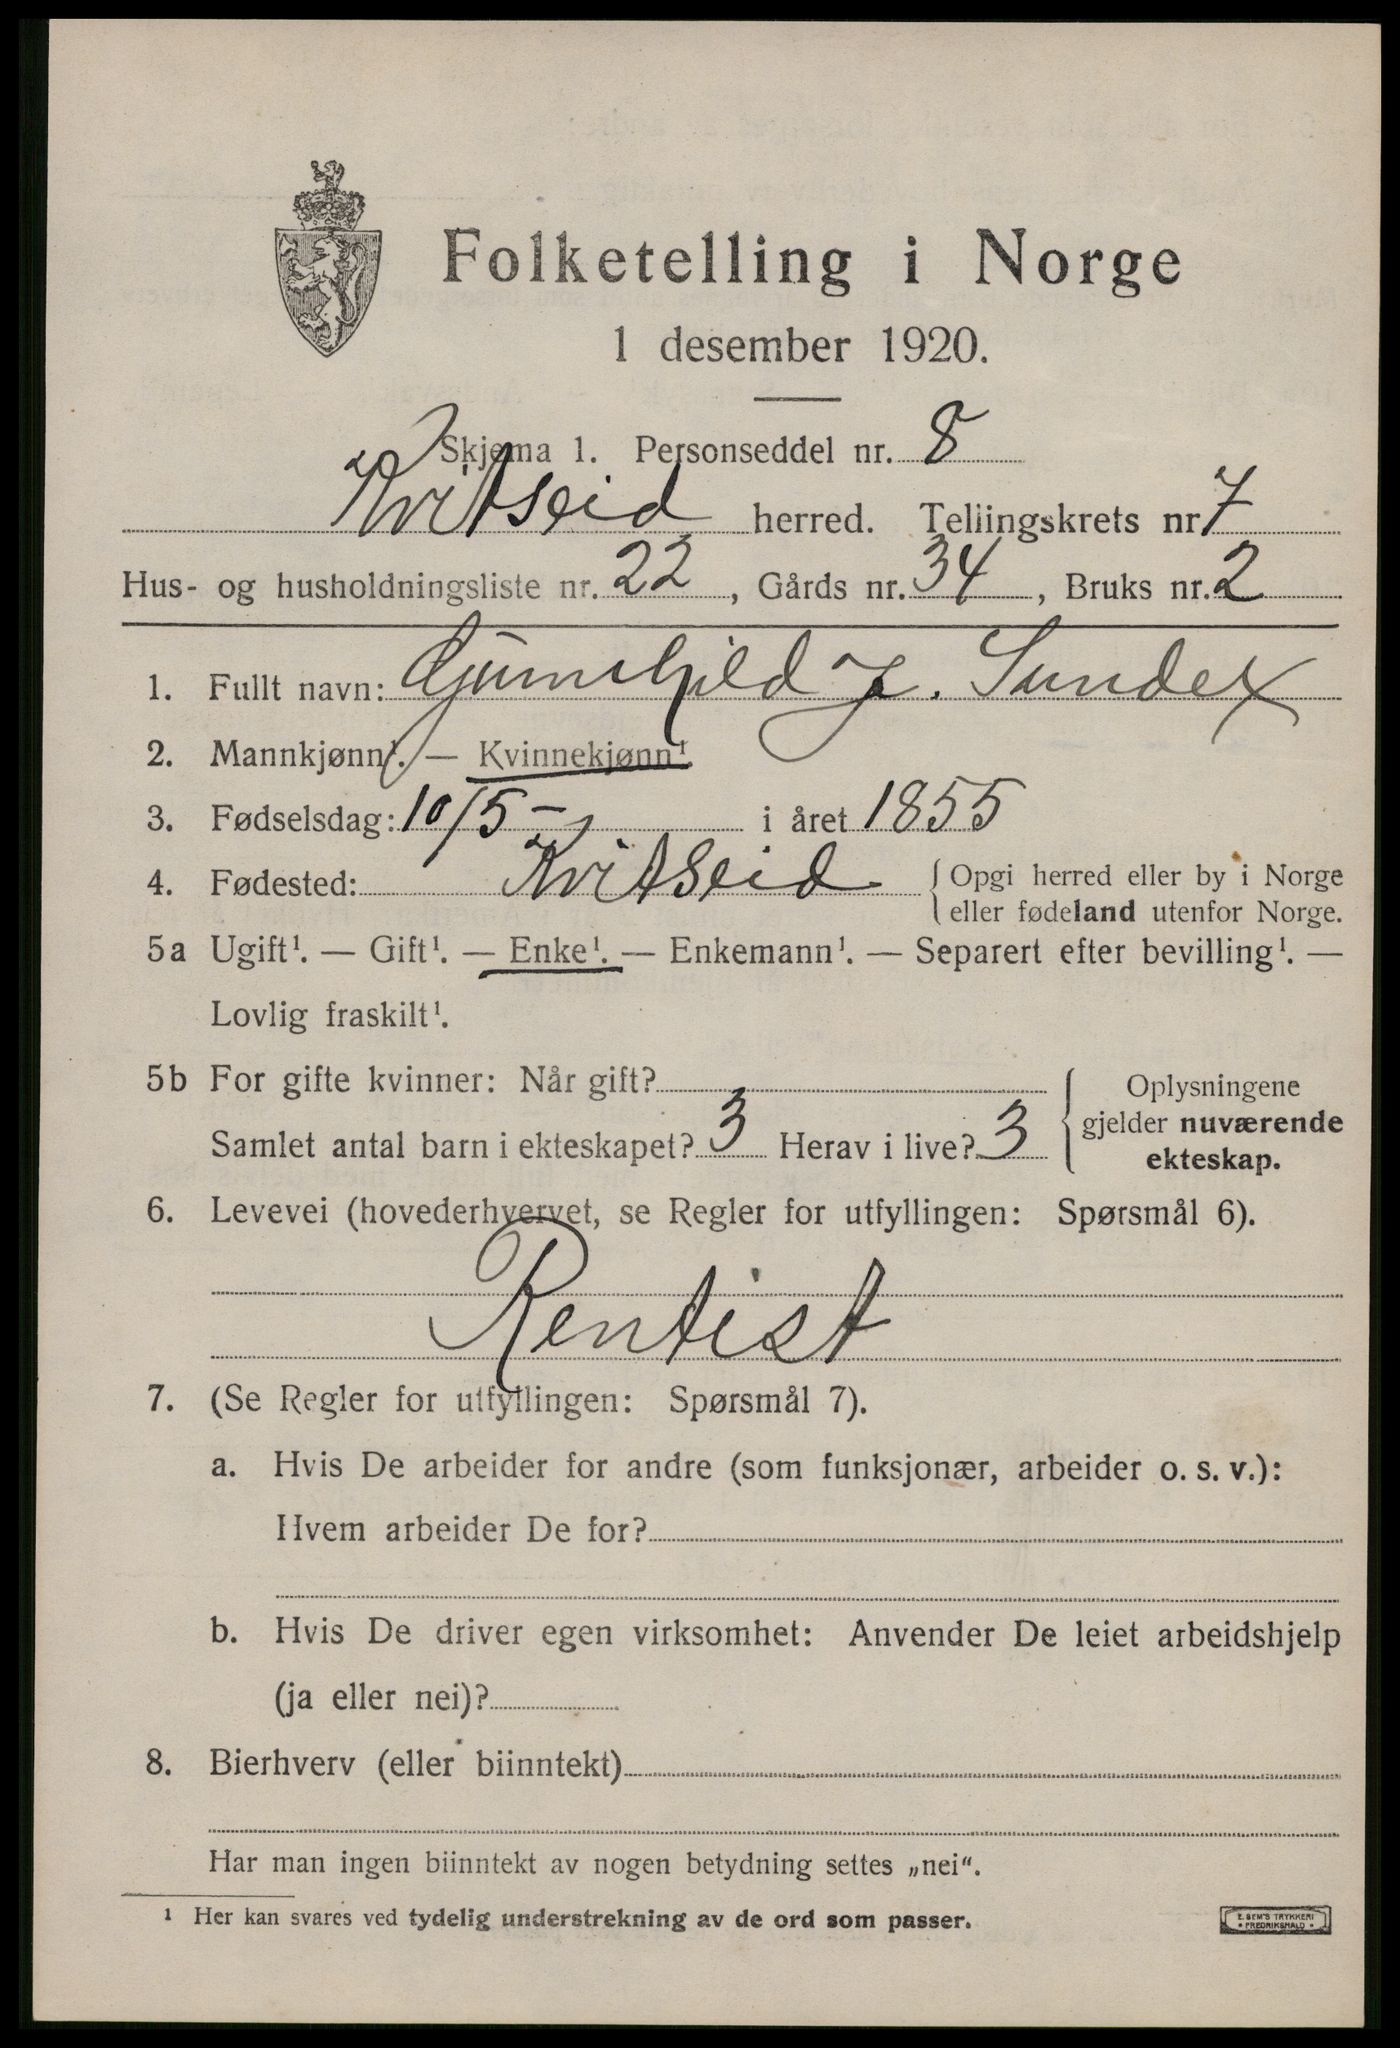 Folketelling i Norge
1 desember 1920.
Skjema 1. Personseddel nr. 8
Kvitseid herred. Tellingskrets nr 7
Hus- og husholdningsliste nr. 22, Gårds nr. 34, Bruks nr. 2
1. Fullt navn: Gunnhild J. Sunde
2. Mannkjønn¹. — Kvinnekjønn¹.
3. Fødselsdag: 10/5 - i året 1855
4. Fødested: Kvitseid { Opgi herred eller by i Norge
eller fødeland utenfor Norge.
5a Ugift¹. — Gift¹. — Enke¹. — Enkemann¹. — Separert efter bevilling¹. —
Lovlig fraskilt¹.
5b For gifte kvinner: Når gift?
Samlet antal barn i ekteskapet? 3 Herav i live? 3
{ Oplysningene
gjelder nuværende
ekteskap.
6. Levevei (hovederhvervet, se Regler for utfyllingen: Spørsmål 6).
Rentist
7. (Se Regler for utfyllingen: Spørsmål 7).
a. Hvis De arbeider for andre (som funksjonær, arbeider o. s. v.):
Hvem arbeider De for?
b. Hvis De driver egen virksomhet: Anvender De leiet arbeidshjelp
(ja eller nei)?
8. Bierhverv (eller biinntekt)
Har man ingen biinntekt av nogen betydning settes „nei“.
¹ Her kan svares ved tydelig understrekning av de ord som passer.
E. SEM'S TRYKKERI
• FREDRIKSHALD •